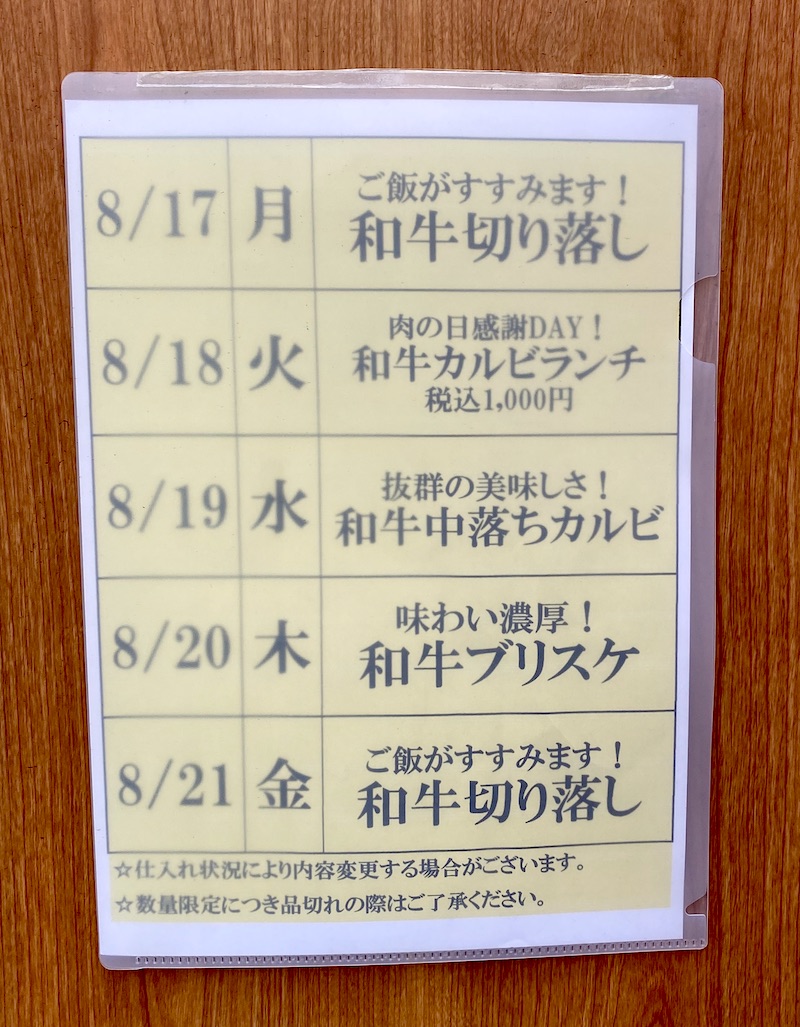 8/17 月 ご飯がすすみます！
和牛切り落し
8/18 火 肉の日感謝DAY！
和牛カルビランチ
税込1,000円
8/19 水 抜群の美味しさ！
和牛中落ちカルビ
8/20 木 味わい濃厚！
和牛ブリスケ
8/21 金 ご飯がすすみます！
和牛切り落し
☆仕入れ状況により内容変更する場合がございます。
☆数量限定につき品切れの際はご了承ください。